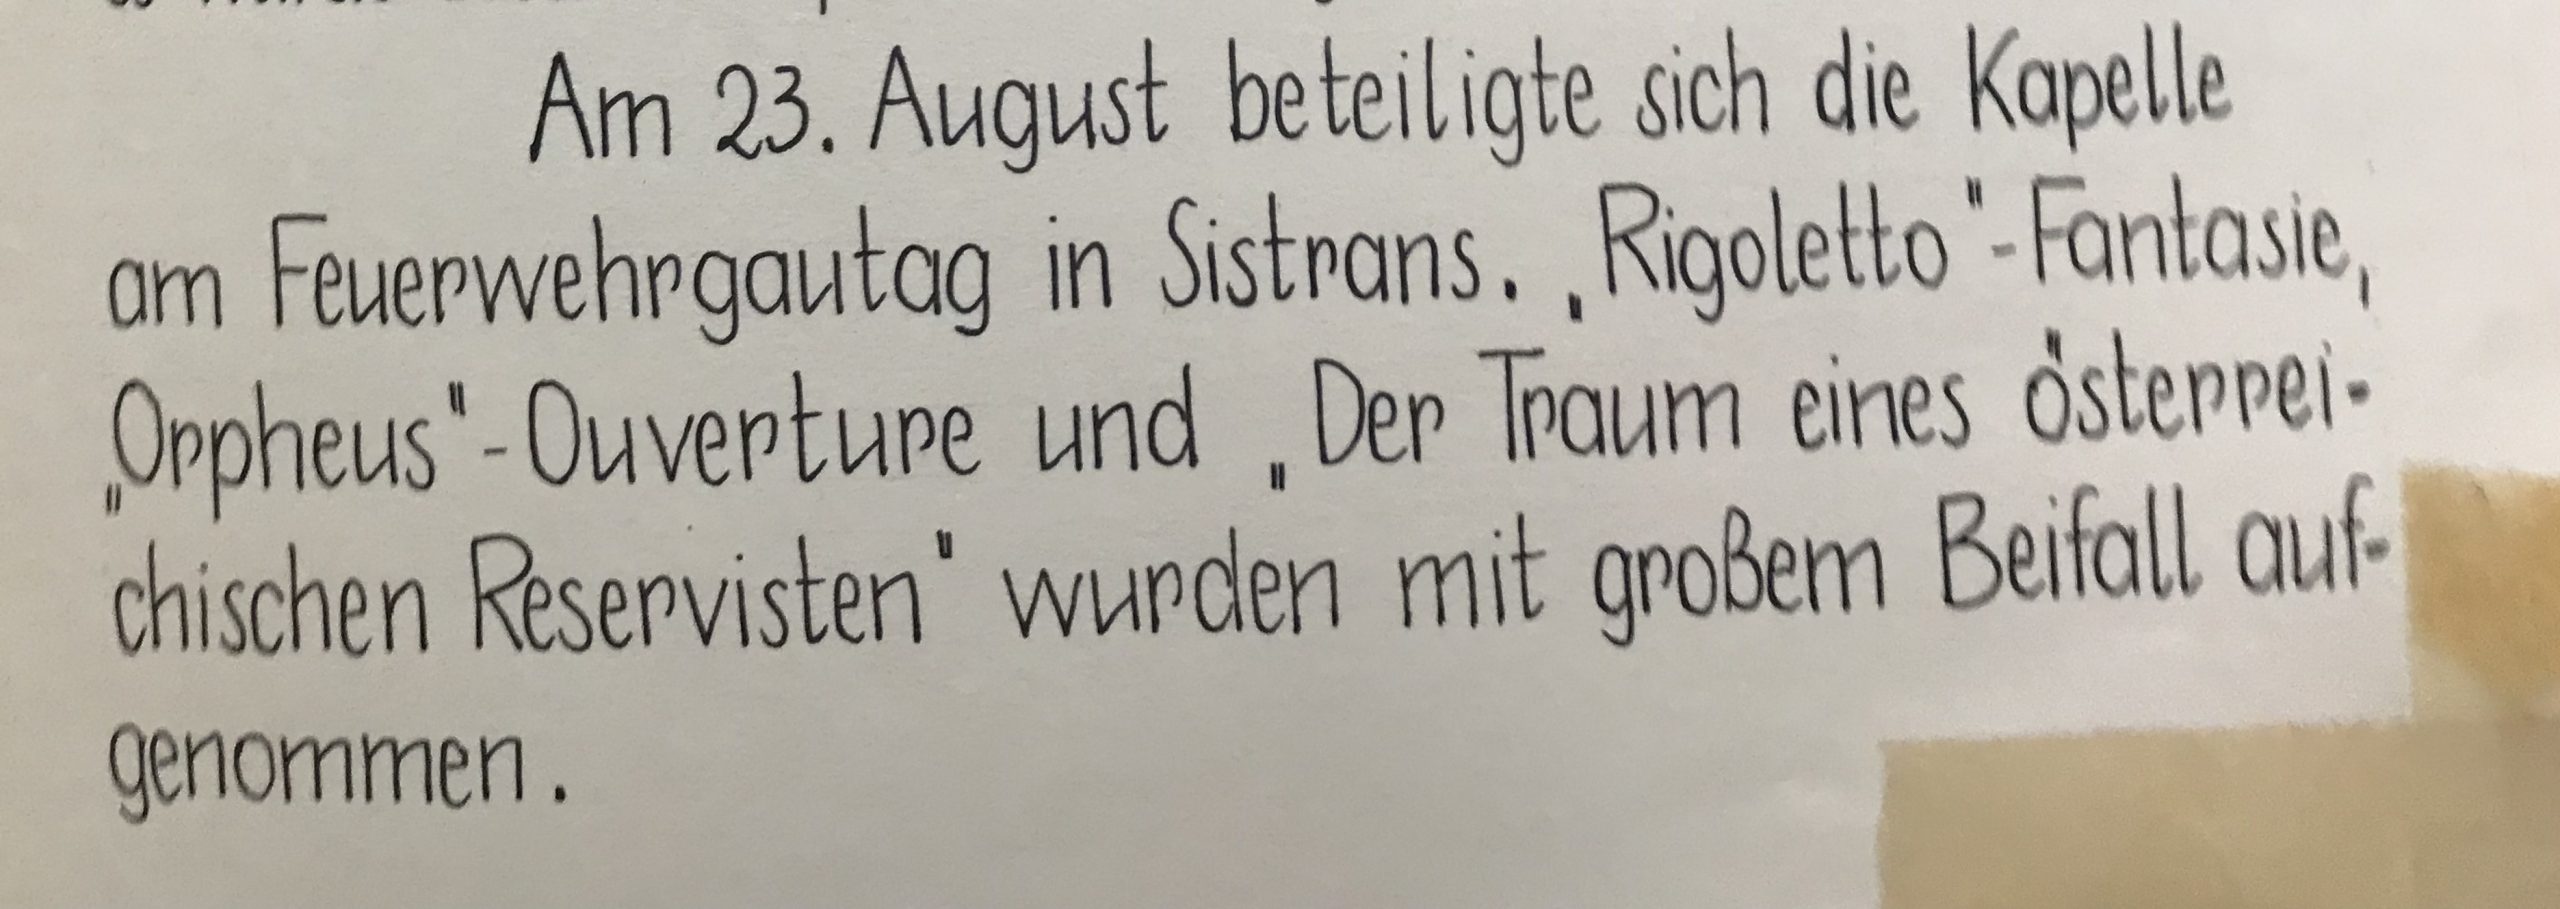 Am 23. August beteiligte sich die Kapelle
am Feuerwehrgautag in Sistrans. „Rigoletto"-Fantasie,
„Orpheus"-Ouverture und „Der Traum eines österrei-
chischen Reservisten" wurden mit großem Beifall auf-
genommen.